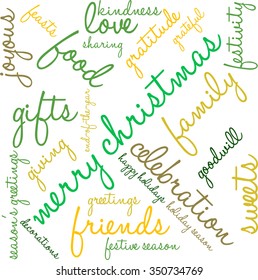 kindness
love
sharing
feasts
joyous
food
gratitude
grateful
festivity
gifts
end-of-the-year
merry christmas
family
giving
season's greetings
happy holidays
celebration
goodwill
sweets
greetings
holiday season
decorations
friends
festive season
shutterstock
IMAGE ID: 350734769
www.shutterstock.com